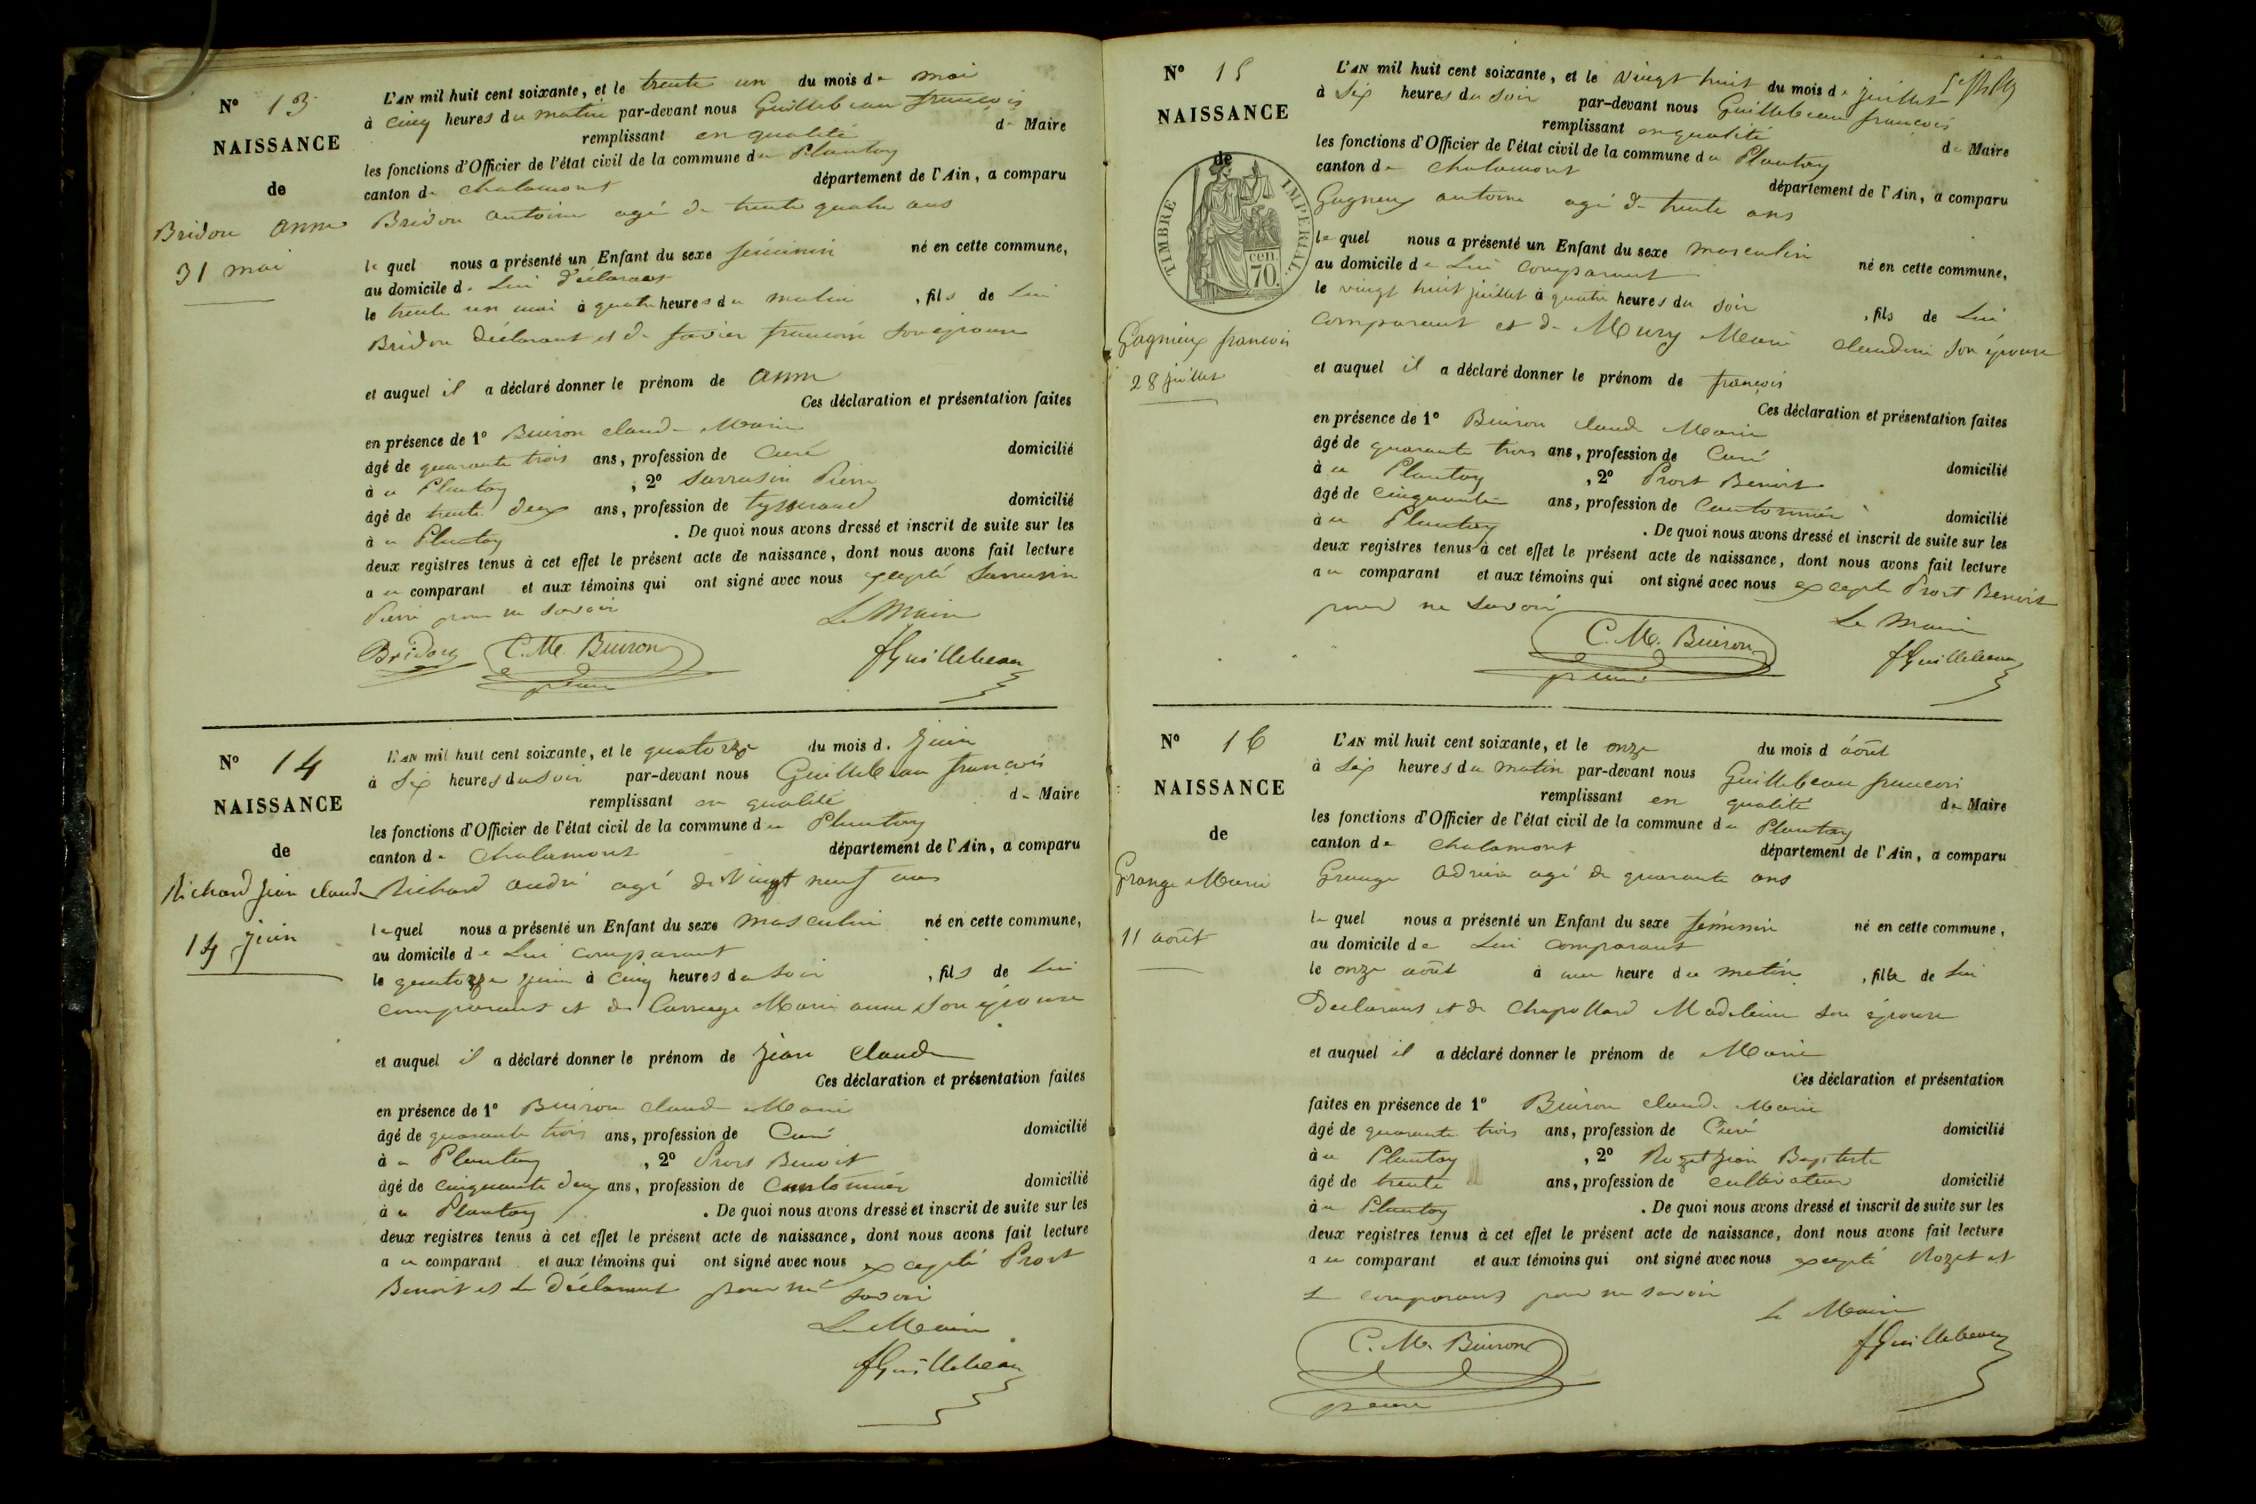 N° 13
NAISSANCE
de
Bridon Anne
31 mai
L'AN mil huit cent soixante, et le trente un du mois de mai
à cinq heures du matin par-devant nous Guillebeau françois
remplissant en qualité de Maire
les fonctions d'Officier de l'état civil de la commune du Plantay
canton de Chalamont département de l'Ain, a comparu
Bridon antoine agé de trente quatre ans
le quel nous a présenté un Enfant du sexe féminin né en cette commune,
au domicile de Lui déclarant
le trente un mai à quatre heures du matin, fils de Lui
Bridon déclarant et de françoise son épouse
et auquel il a déclaré donner le prénom de anne
Ces déclaration et présentation faites
en présence de 1° Buiron claude Marie
âgé de quarante trois ans, profession de Curé domicilié
à u Plantay, 2° Sarrasin Pierre
âgé de trente deux ans, profession de tysserand domicilié
à u Plantay. De quoi nous avons dressé et inscrit de suite sur les
deux registres tenus à cet effet le présent acte de naissance, dont nous avons fait lecture
a u comparant et aux témoins qui ont signé avec nous excepté Sarrasin
Pierre pour ne savoir
Le Maire
Bridon C. M. Buiron fGuillebeau
N° 14
NAISSANCE
de
Richard jean claude
14 juin
L'AN mil huit cent soixante, et le quatorze du mois de juin
à Six heures du soir par-devant nous Guillebeau françois
remplissant en qualité de Maire
les fonctions d'Officier de l'état civil de la commune du Plantay
canton de Chalamont département de l'Ain, a comparu
Richard andré agé de Vingt neuf ans
le quel nous a présenté un Enfant du sexe masculin né en cette commune,
au domicile de Lui comparant
le quatorze juin à cinq heures du soir, fils de Lui
comparant et de Marie anne son épouse
et auquel il a déclaré donner le prénom de jean claude
Ces déclaration et présentation faites
en présence de 1° Buiron claude Marie
âgé de quarante trois ans, profession de Curé domicilié
à u Plantay, 2° Prost Benoit
âgé de cinquante deux ans, profession de Cantonnier domicilié
à u Plantay. De quoi nous avons dressé et inscrit de suite sur les
deux registres tenus à cet effet le présent acte de naissance, dont nous avons fait lecture
a u comparant et aux témoins qui ont signé avec nous excepté Prost
Benoit et le déclarant pour ne savoir
Le Maire
fGuillebeau
N° 15
NAISSANCE
de
TIMBRE IMPÉRIAL
cen. 70.
Gagnieux francois
28 juillet
L'AN mil huit cent soixante, et le vingt huit du mois de juillet
à Six heures du soir par-devant nous Guillebeau françois
remplissant en qualité de Maire
les fonctions d'Officier de l'état civil de la commune du Plantay
canton de Chalamont département de l'Ain, a comparu
Gagneux antoine agé de trente ans
le quel nous a présenté un Enfant du sexe masculin né en cette commune,
au domicile de Lui comparant
le vingt huit juillet à quatre heures du soir, fils de Lui
comparant et de Mury Marie claudine son épouse
et auquel il a déclaré donner le prénom de françois
Ces déclaration et présentation faites
en présence de 1° Buiron claude Marie
âgé de quarante trois ans, profession de Curé domicilié
à u Plantay, 2° Prost Benoit
âgé de cinquante ans, profession de Cantonnier domicilié
à u Plantay. De quoi nous avons dressé et inscrit de suite sur les
deux registres tenus à cet effet le présent acte de naissance, dont nous avons fait lecture
a u comparant et aux témoins qui ont signé avec nous excepté Prost Benoit
pour ne savoir
Le Maire
C. M. Buiron fGuillebeau
N° 16
NAISSANCE
de
Grange Marie
11 août
L'AN mil huit cent soixante, et le onze du mois d août
à six heures du matin par-devant nous Guillebeau francois
remplissant en qualité de Maire
les fonctions d'Officier de l'état civil de la commune du Plantay
canton de Chalamont département de l'Ain, a comparu
Grange Adrien agé de quarante ans
le quel nous a présenté un Enfant du sexe féminin né en cette commune,
au domicile de Lui comparant
le onze août à une heure du matin, fille de Lui
Déclarant et de Chapolard Madeleine son épouse
et auquel il a déclaré donner le prénom de Marie
Ces déclaration et présentation
faites en présence de 1° Buiron claude Marie
âgé de quarante trois ans, profession de Curé domicilié
à u Plantay, 2° Rozet jean Baptiste
âgé de trente ans, profession de cultivateur domicilié
à u Plantay. De quoi nous avons dressé et inscrit de suite sur les
deux registres tenus à cet effet le présent acte de naissance, dont nous avons fait lecture
a u comparant et aux témoins qui ont signé avec nous excepté Rozet et
le comparant pour ne savoir
Le Maire
C. M. Buiron fGuillebeau